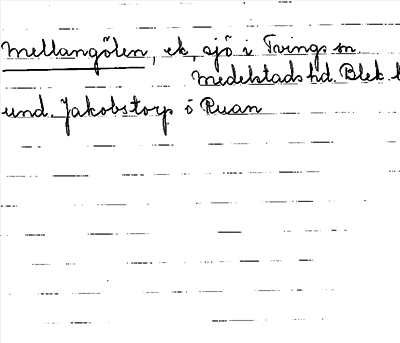 Mellangölen, ek, sjö i Tvings sn
Medelstads hd. Blek. l
und. Jakobstorp o Ruan